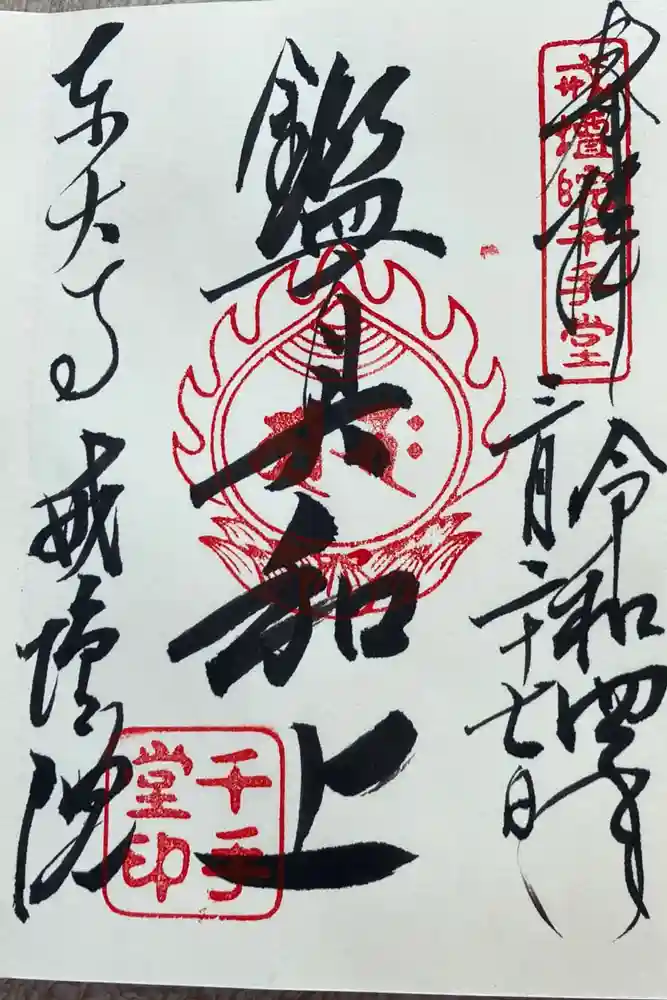 奉拝
戒壇院千手堂
令和四年
二月二十七日
鑑真和上
東大寺
戒壇院
千手
堂印